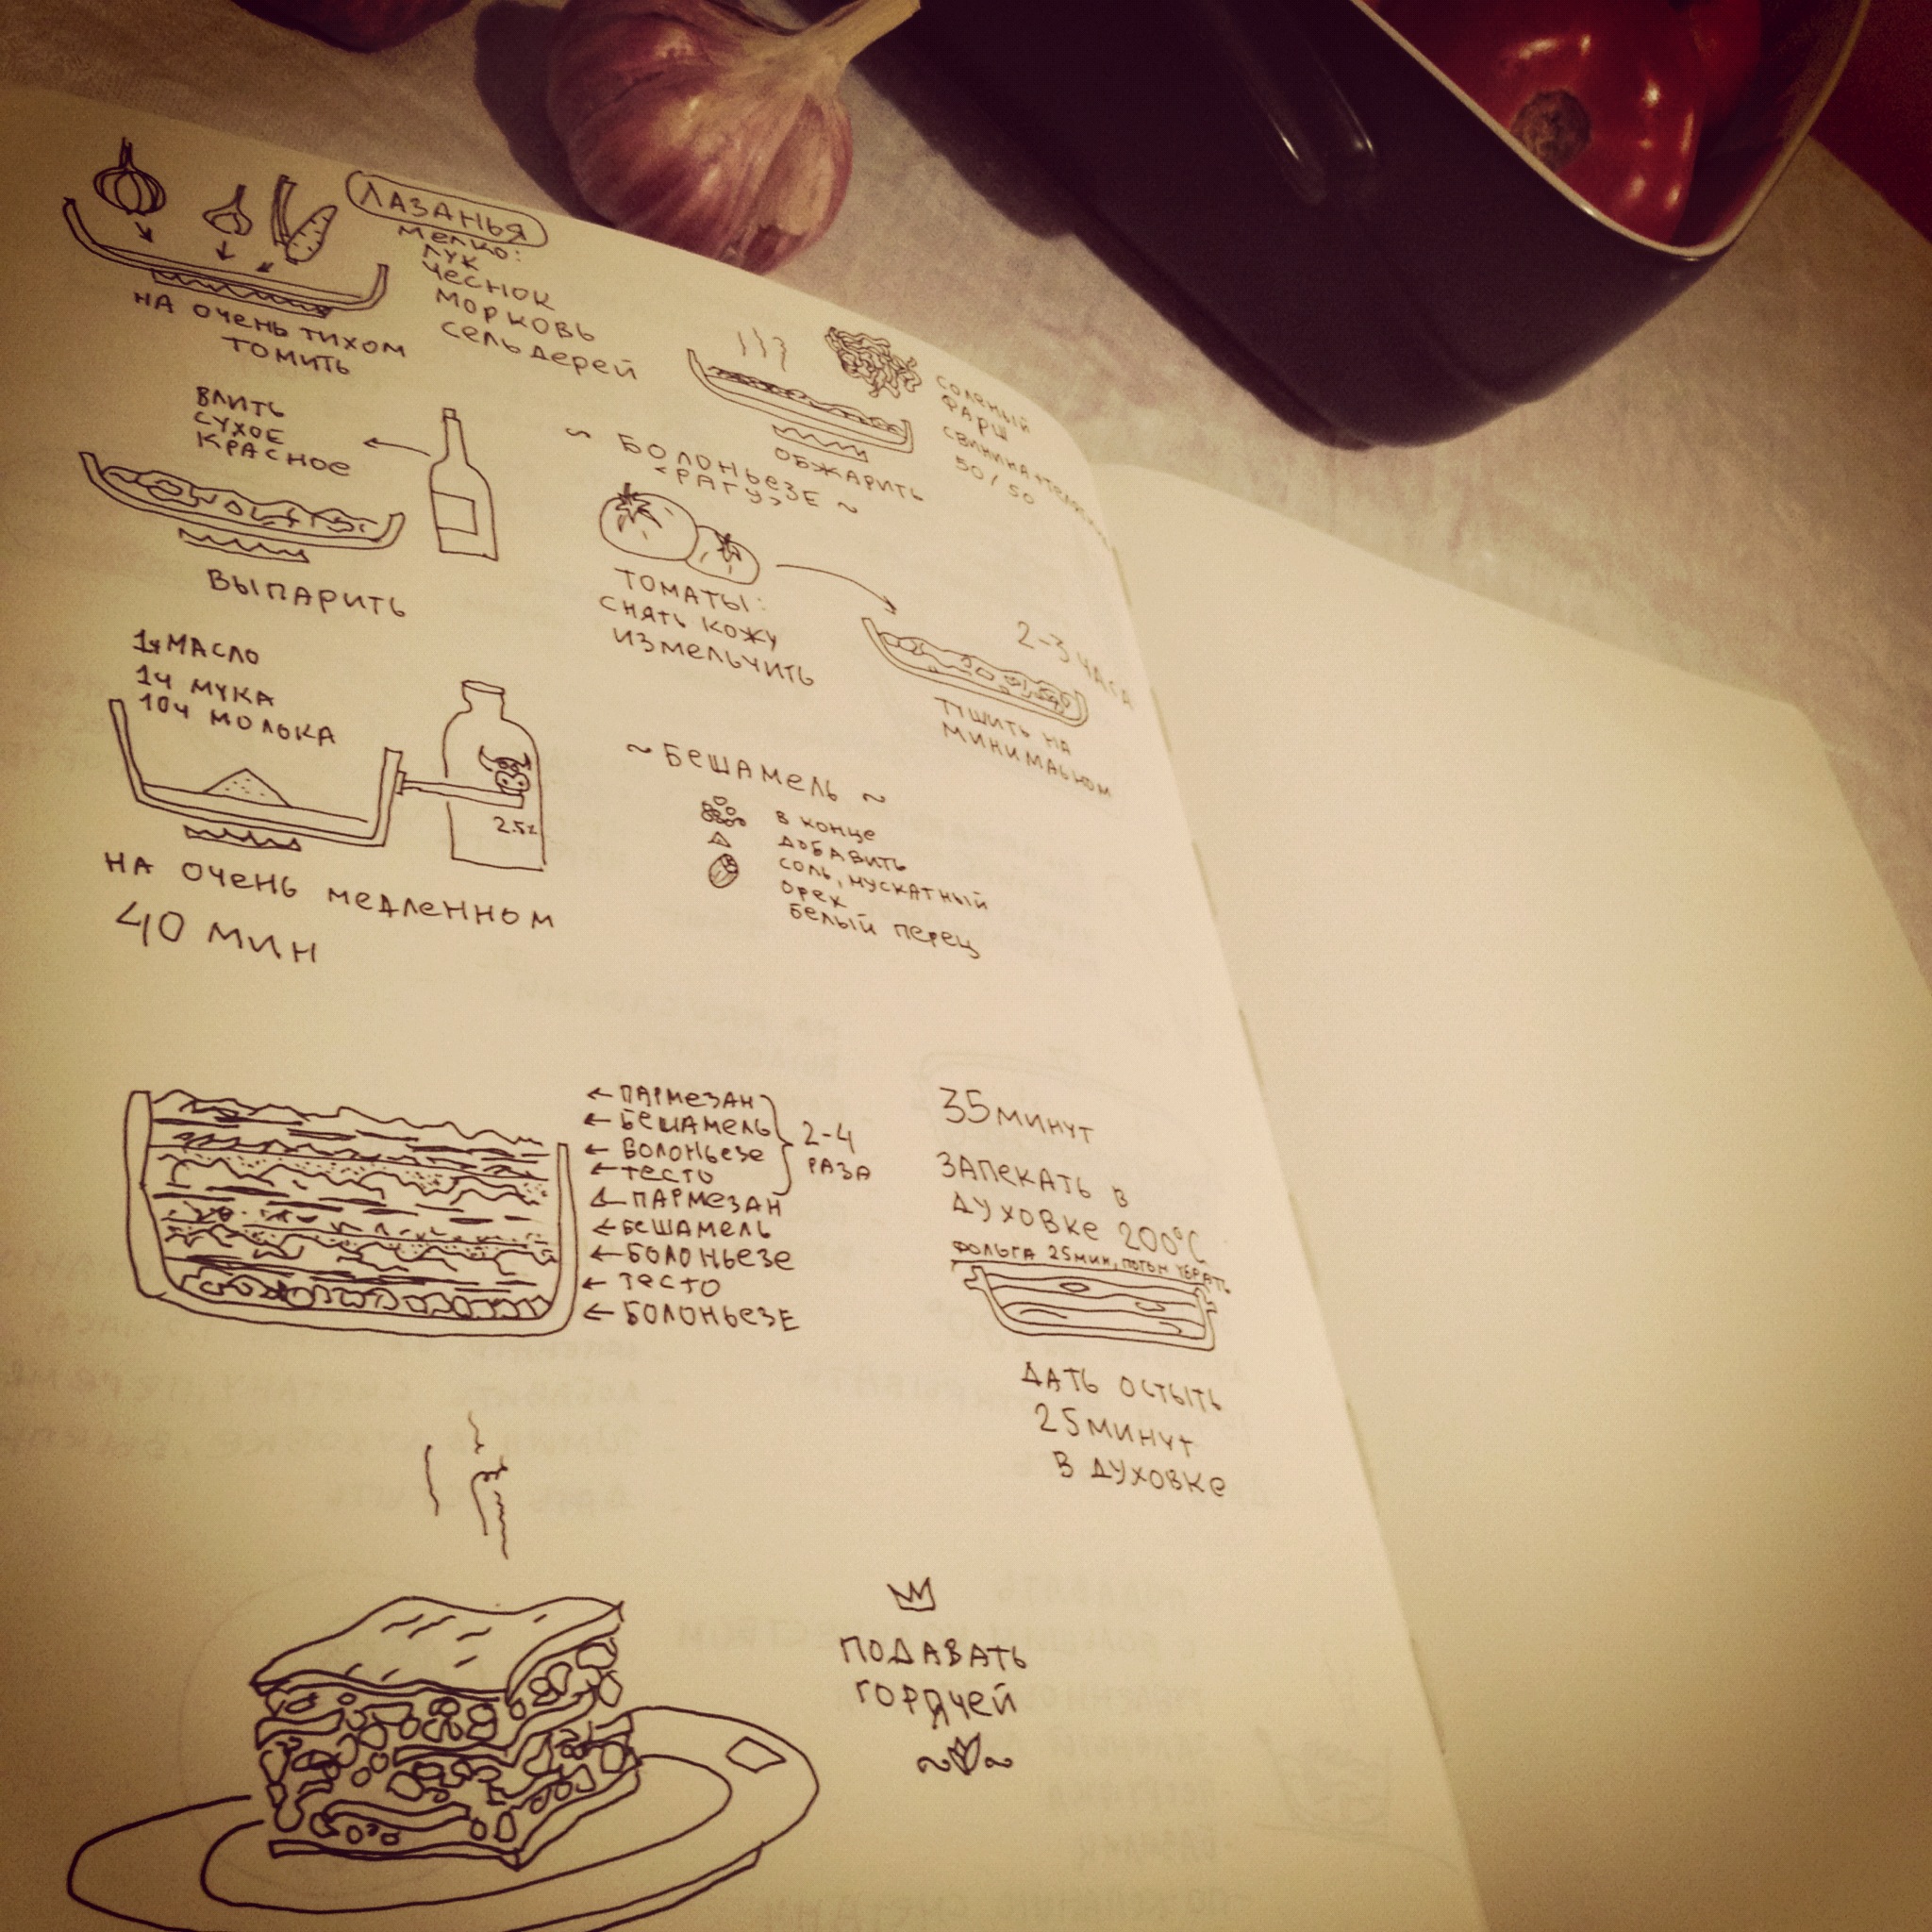 ЛАЗАНЬЯ
мелко:
лук
чеснок
морковь
сельдерей
на очень тихом
томить
соленый
фарш
свинина +
50/50
обжарить
влить
сухое
красное
выпарить
~ Болоньезе ~
<рагу>
томаты:
снять кожу
измельчить
2-3 часа
тушить на
минимальном
1ч масло
1ч мука
10ч молька
2.5%
на очень медленном
40 мин
~ Бешамель ~
в конце
добавить
соль, мускатный
орех
белый перец
← пармезан
← бешамель
← болоньезе
← тесто
2-4
раза
← пармезан
← бешамель
← болоньезе
← тесто
← болоньезе
35 минут
запекать в
духовке 200°С
фольга 25 мин, потом убрать
дать остыть
25 минут
в духовке
подавать
горячей